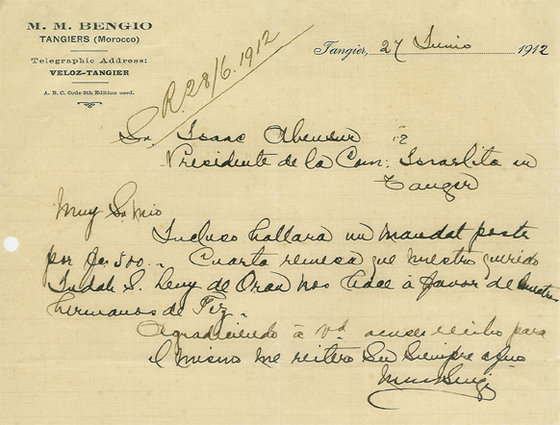 M. M. BENGIO
TANGIERS (Morocco)
Telegraphic Address:
VELOZ-TANGIER
A. B. C. Code 5th Edition used.
R. 28/6. 1912
Tangier, 27 Junio 1912
Sr. Isaac Abensur
Presidente de la Com: Israelita en
Tanger
Muy Sr. mio
Incluso hallara un mandat poste
por fs. 500.. Cuarta remesa que nuestro querido
Judah S. Levy de Oran nos hace à favor de nuestros
hermanos de Fez.
Agradeciendo à Vd. acuse recibo para
el mismo me reitero Su Siempre afmo